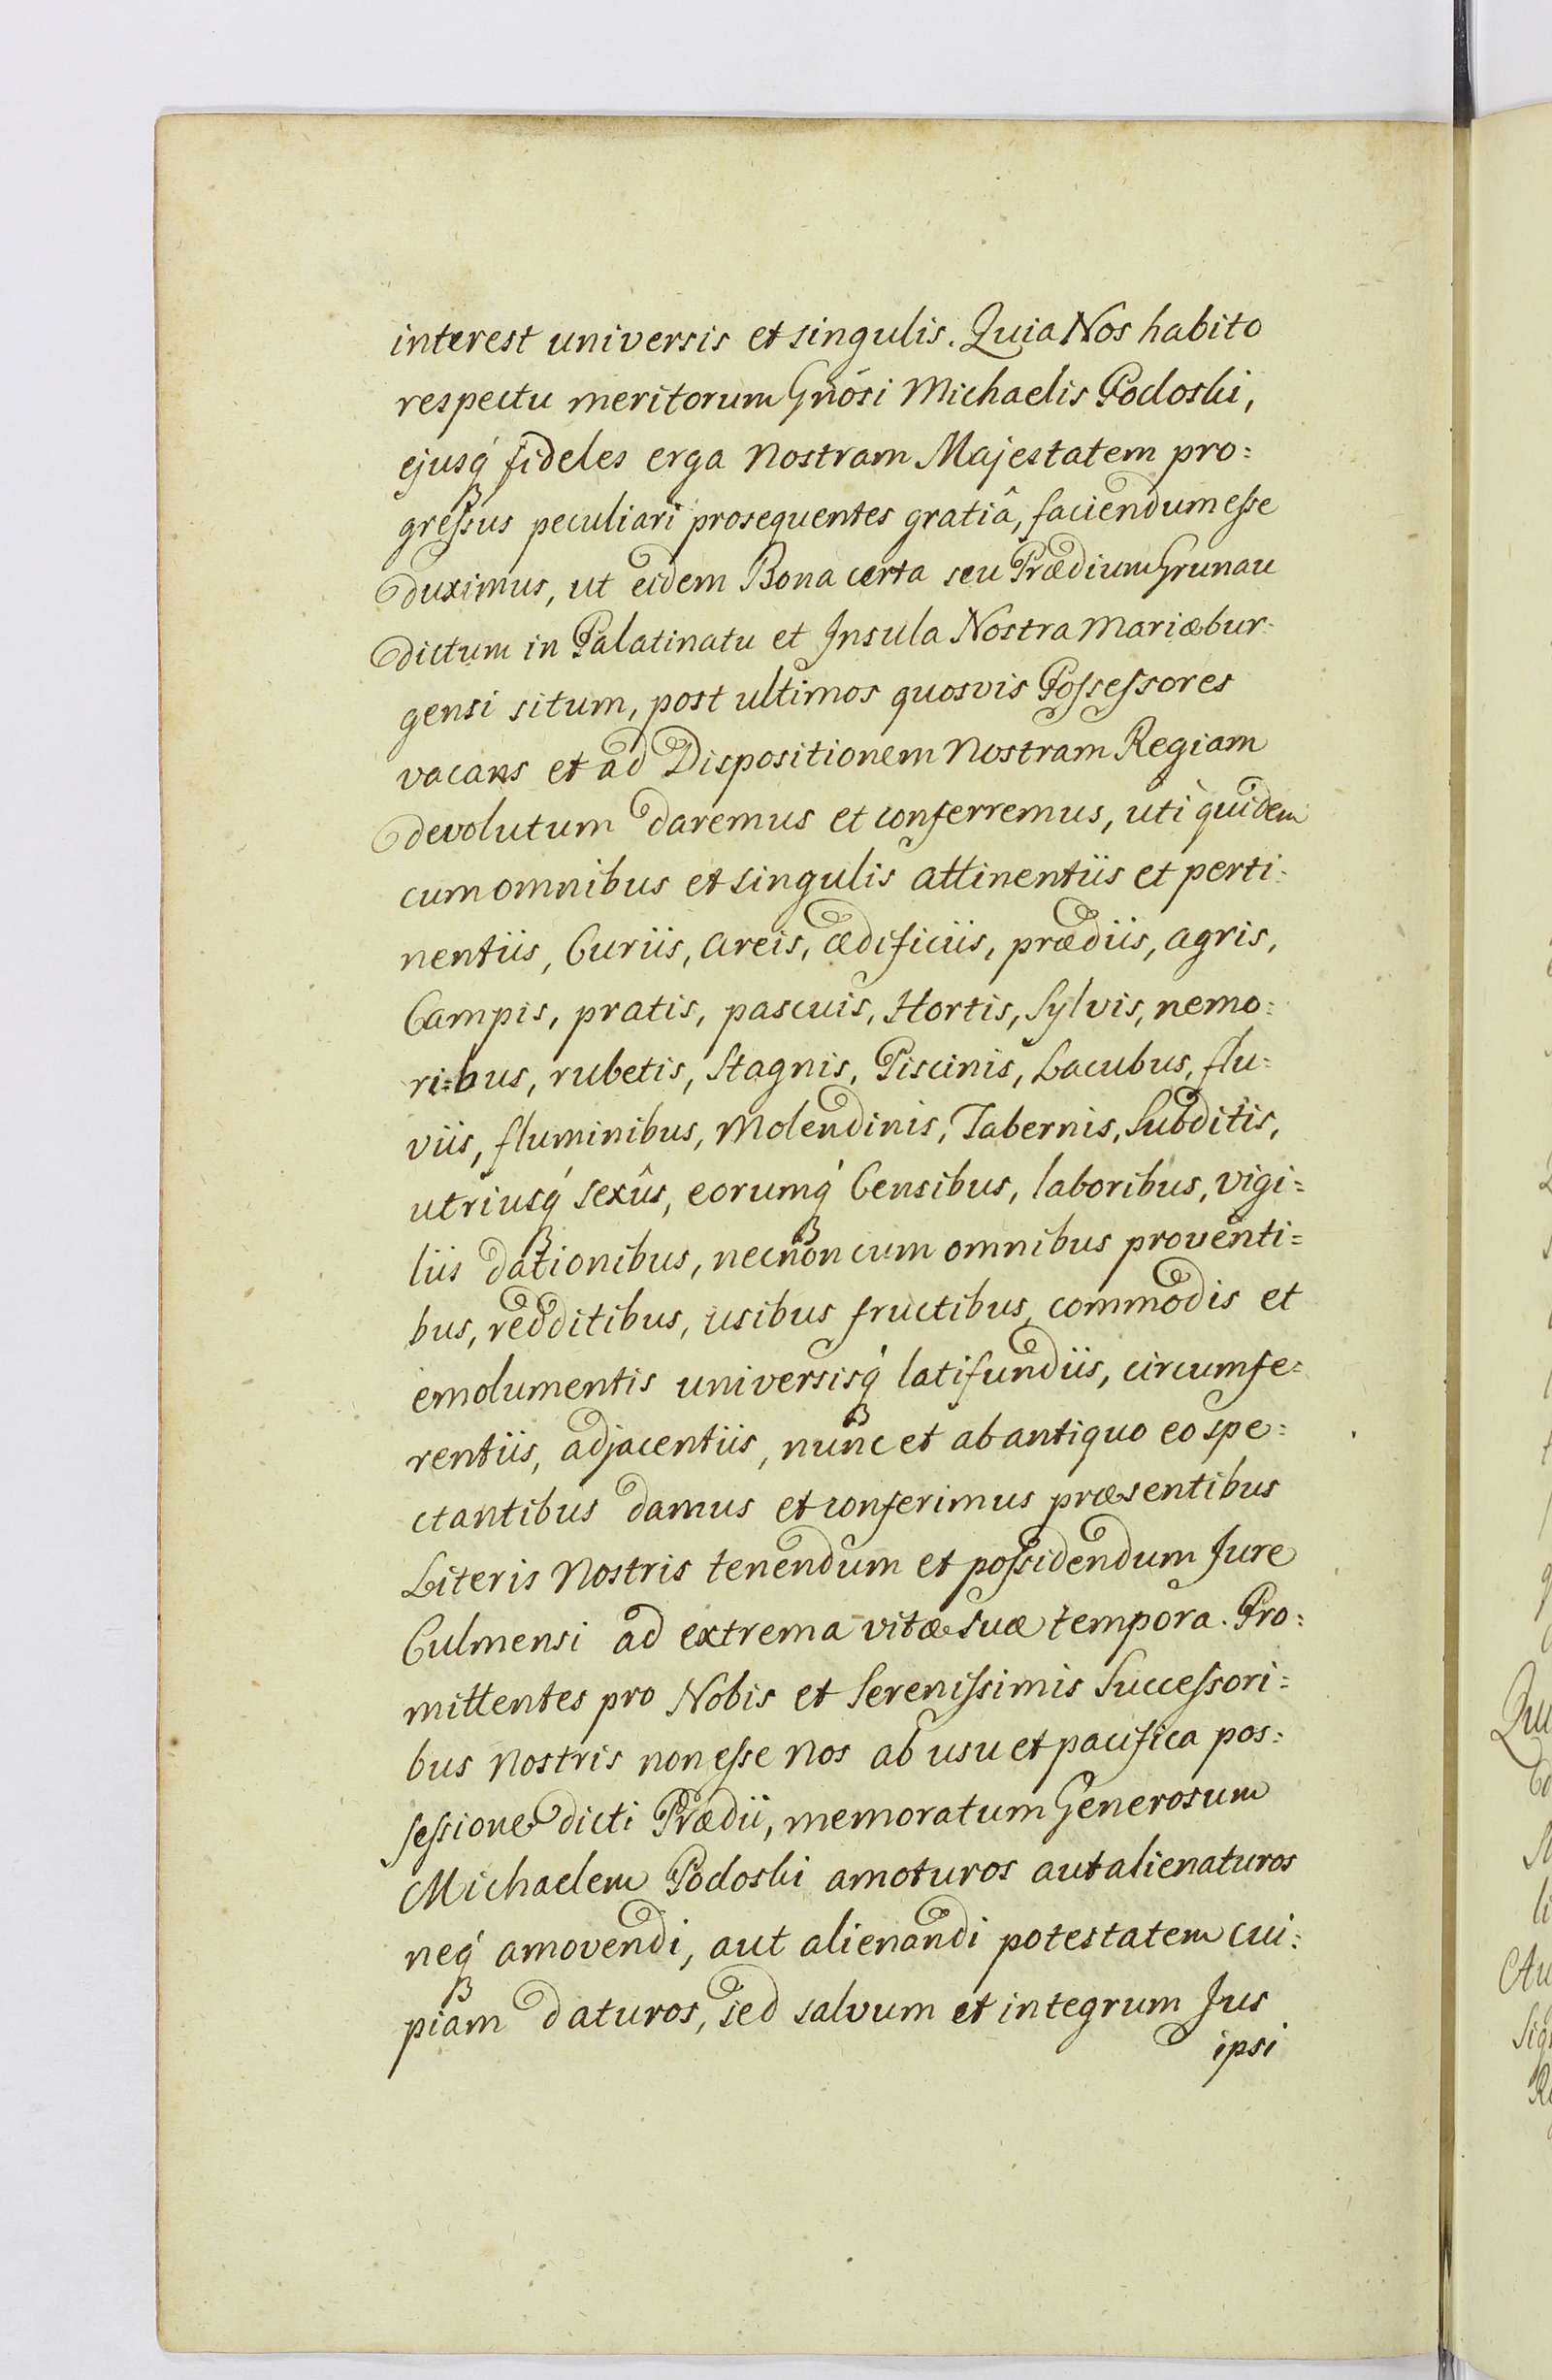 interest universis et singulis. Quia Nos habito
respectu meritorum Gnosi Michaelis Podoski,
ejusq́ fideles erga Nostram Majestatem pro=
gressus peculiari prosequentes gratiâ, faciendum esse
duximus, ut eidem Bona certa seu Prædium Grunau
dictum in Palatinatu et Insula Nostra Mariæbur=
gensi situm, post ultimos quosvis Possessores
vacans et ad Dispositionem Nostram Regiam
devolutum daremus et conferremus, uti quidem
cum omnibus et singulis attinentiis et perti=
nentiis, Curiis, areis, ædificiis, prædiis, agris,
Campis, pratis, pascuis, Hortis, Sylvis, nemo=
ri=bus, rubetis, Stagnis, Piscinis, Lacubus, flu=
viis, fluminibus, Molendinis, Tabernis, Subditis,
utriusq́ sexûs, eorumq́ Censibus, laboribus, vigi=
liis dationibus, necnon cum omnibus proventi=
bus, redditibus, usibus fructibus, commodis et
emolumentis universisq́ latifundiis, circumfe=
rentiis, adjacentiis, nunc et ab antiquo eo spe=
ctantibus damus et conferimus præsentibus
Literis Nostris tenendum et possidendum Jure
Culmensi ad extrema vitæ suæ tempora. Pro=
mittentes pro Nobis et Serenissimis Successori=
bus Nostris non esse Nos ab usu et pacifica pos=
sessione dicti Prædii, memoratum Generosum
Michaelem Podoski amoturos aut alienaturos
neq́ amovendi, aut alienandi potestatem cui=
piam daturos, sed salvum et integrum Jus
ipsi